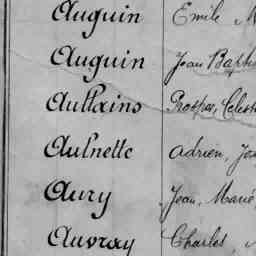 Auguin Emile M
Auguin Jean Baptis
Aullains Prosper, Celest
Aulnette Adrien, Jos
Aury Jean, Marie
Auvray Charles, A